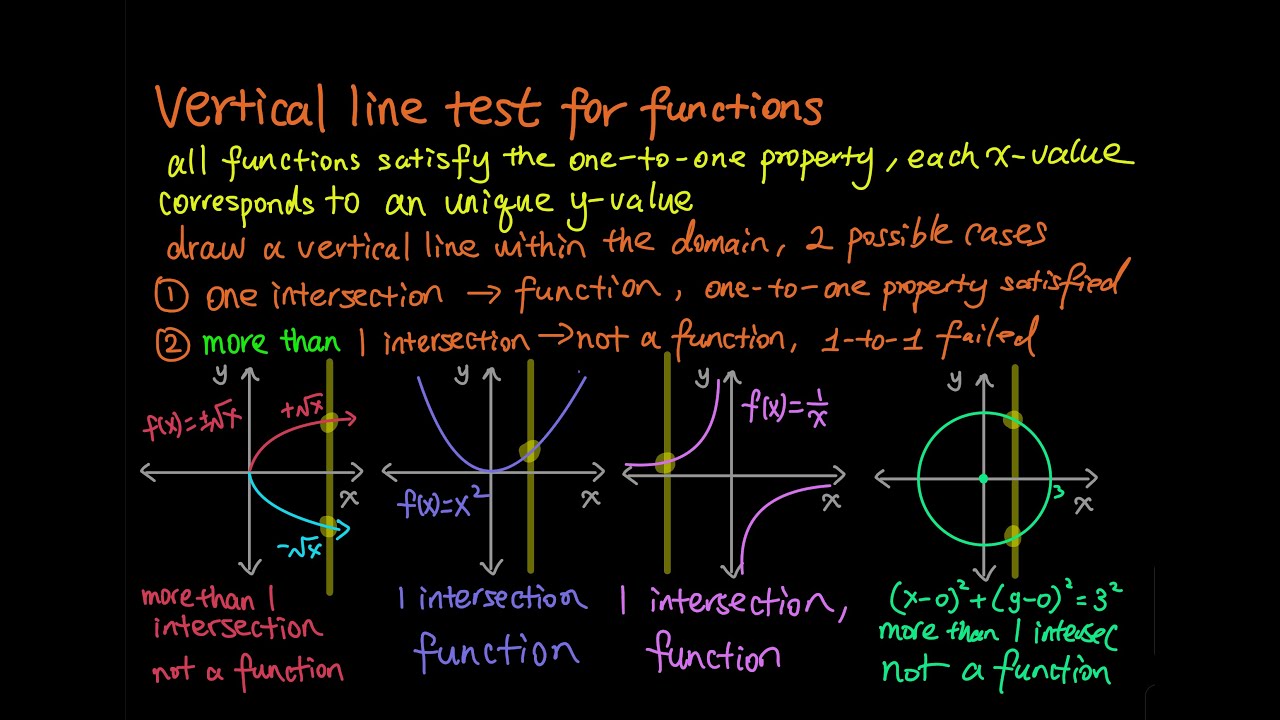 Vertical line test for functions
all functions satisfy the one-to-one property, each x-value
corresponds to an unique y-value
draw a vertical line within the domain, 2 possible cases
① one intersection → function, one-to-one property satisfied
② more than 1 intersection → not a function, 1-to-1 failed
y
f(x)=±√x
+√x
x
-√x
more than 1
intersection
not a function
y
x
f(x)=x²
1 intersection
function
y
f(x)=1/x
x
1 intersection,
function
y
3
x
(x-0)²+(y-0)²=3²
more than 1 intersec
not a function